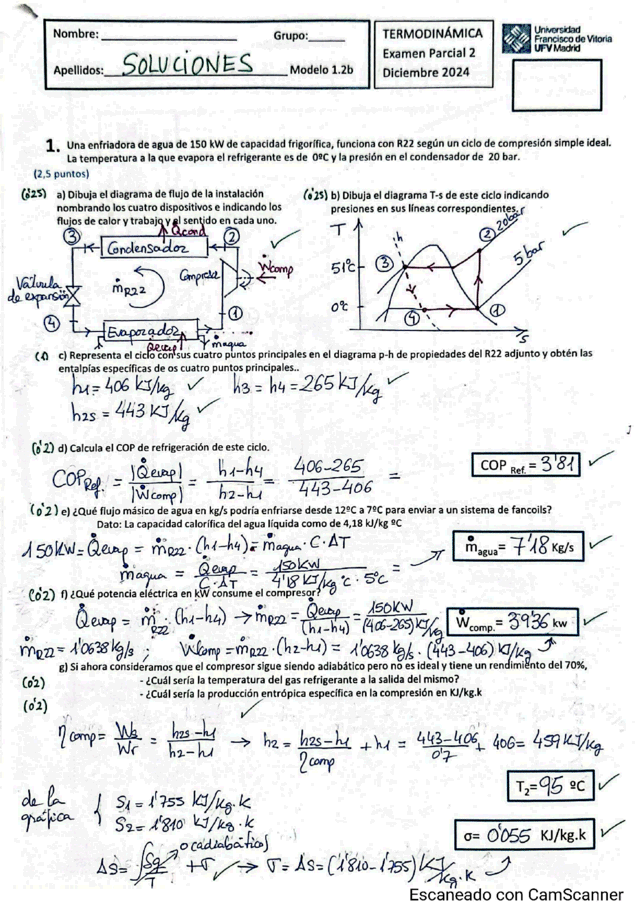 Nombre: ____________ Grupo:______
Apellidos: SOLUCIONES Modelo 1.2b
TERMODINÁMICA
Examen Parcial 2
Diciembre 2024
Universidad
Francisco de Vitoria
UFV Madrid
1. Una enfriadora de agua de 150 kW de capacidad frigorífica, funciona con R22 según un ciclo de compresión simple ideal.
La temperatura a la que evapora el refrigerante es de 0ºC y la presión en el condensador de 20 bar.
(2,5 puntos)
(0'25) a) Dibuja el diagrama de flujo de la instalación
nombrando los cuatro dispositivos e indicando los
flujos de calor y trabajo y el sentido en cada uno.
Q̇cond
③ Condensador ②
Válvula
de expansión
ṁR22
Compresor
Ẇcomp
④ Evaporador ①
Q̇evap
ṁagua
(0'25) b) Dibuja el diagrama T-s de este ciclo indicando
presiones en sus líneas correspondientes.
T
h
② 20bar
5 bar
51ºc ③
0ºc ④ ①
s
c) Representa el ciclo con sus cuatro puntos principales en el diagrama p-h de propiedades del R22 adjunto y obtén las
entalpías específicas de os cuatro puntos principales..
h1 = 406 KJ/kg ✓ h3 = h4 = 265 KJ/kg ✓
h2s = 443 KJ/kg ✓
(0'2) d) Calcula el COP de refrigeración de este ciclo.
COP Ref. = |Q̇evap| / |Ẇcomp| = h1-h4 / h2-h1 = 406-265 / 443-406 =
COP Ref. = 3'81 ✓
(0'2) e) ¿Qué flujo másico de agua en kg/s podría enfriarse desde 12ºC a 7ºC para enviar a un sistema de fancoils?
Dato: La capacidad calorífica del agua líquida como de 4,18 kJ/kg ºC
150KW = Q̇evap = ṁR22 · (h1-h4) = ṁagua · C · ΔT
ṁagua = Q̇evap / C·ΔT = 150KW / 4'18 KJ/kg ºc · 5ºc =
ṁagua = 7'18 Kg/s ✓
(0'2) f) ¿Qué potencia eléctrica en kW consume el compresor?
Q̇evap = ṁR22 · (h1-h4) → ṁR22 = Q̇evap / (h1-h4) = 150KW / (406-265) KJ/kg
Ẇcomp. = 39'36 kw ✓
ṁR22 = 1'0638 kg/s ; Ẇcomp = ṁR22 · (h2-h1) = 1'0638 kg/s · (443-406) KJ/kg
g) Si ahora consideramos que el compresor sigue siendo adiabático pero no es ideal y tiene un rendimiento del 70%,
(0'2) - ¿Cuál sería la temperatura del gas refrigerante a la salida del mismo?
(0'2) - ¿Cuál sería la producción entrópica específica en la compresión en KJ/kg.k
η comp = Ws / Wr = h2s-h1 / h2-h1 → h2 = h2s-h1 / η comp + h1 = 443-406 / 0'7 + 406 = 459 KJ/kg
T2= 95 ºC ✓
de la
gráfica { S1 = 1'755 KJ/kg·K
S2 = 1'810 KJ/kg·K
σ= 0'055 KJ/kg.k ✓
ΔS = ∫ δq / T + σ → σ = ΔS = (1'810-1'755) KJ/kg·K
0 (adiabático)
Escaneado con CamScanner